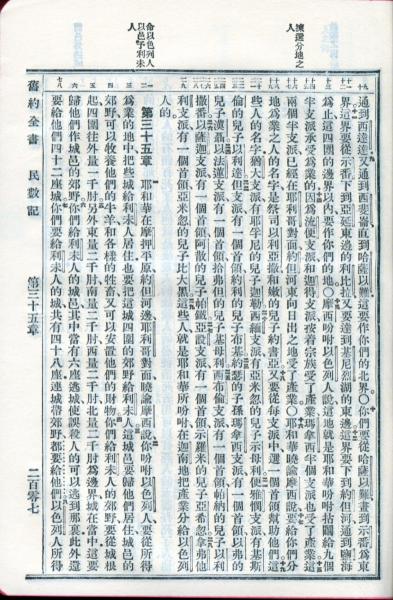 揀選分地之人
命以色列人以邑予利未人
通到西達達又通到西斐崙直到哈薩以難這要作你們的北界○你們要從哈薩以難畫到示番爲東
界這界要從示番下到亞延東邊的利比拉又要達到基尼烈湖的東邊這界要下到約但河通到鹽海
爲止這四圍的邊界以內要作你們的地○摩西吩咐以色列人說這地就是耶和華吩咐拈鬮給九個
半支派承受爲業的因爲流便支派和迦得支派按着宗族受了產業瑪拿西半個支派也受了產業這
兩個半支派已經在耶利哥對面約但河東向日出之地受了產業○耶和華曉諭摩西說要給你們分
地爲業之人的名字是祭司以利亞撒和嫩的兒子約書亞又要從每支派中選一個首領幫助他們這
些人的名字猶大支派有耶孚尼的兒子迦勒西緬支派有亞米忽的兒子示母利便雅憫支派有基斯
倫的兒子以利達但支派有一個首領約利的兒子布基約瑟的子孫瑪拿西支派有一個首領以弗的
兒子漢聶以法蓮支派有一個首領拾弗但的兒子基母利西布倫支派有一個首領帕納的兒子以利
撒番以薩迦支派有一個首領阿散的兒子帕鐵亞設支派有一個首領示羅米的兒子亞希忽拿弗他
利支派有一個首領亞米忽的兒子比大黑這些人就是耶和華所吩咐在迦南地把產業分給以色列
人的
第三十五章 耶和華在摩押平原約但河邊耶利哥對面曉諭摩西說你吩咐以色列人要從所得
爲業的地中把些城給利未人居住也要把這城四圍的郊野給利未人這城邑要歸他們居住城邑的
郊野可以牧養他們的牛羊和各樣的牲畜又可以安置他們的財物你們給利未人的郊野要從城根
起四圍往外量一千肘另外東量二千肘南量二千肘西量二千肘北量二千肘爲邊界城在當中這要
歸他們作城邑的郊野你們給利未人的城邑其中當有六座逃城使誤殺人的可以逃到那裏此外還
要給他們四十二座城你們要給利未人的城共有四十八座連城帶郊野都要給他們以色列人
舊約全書 民數記 第三十五章 二百零七